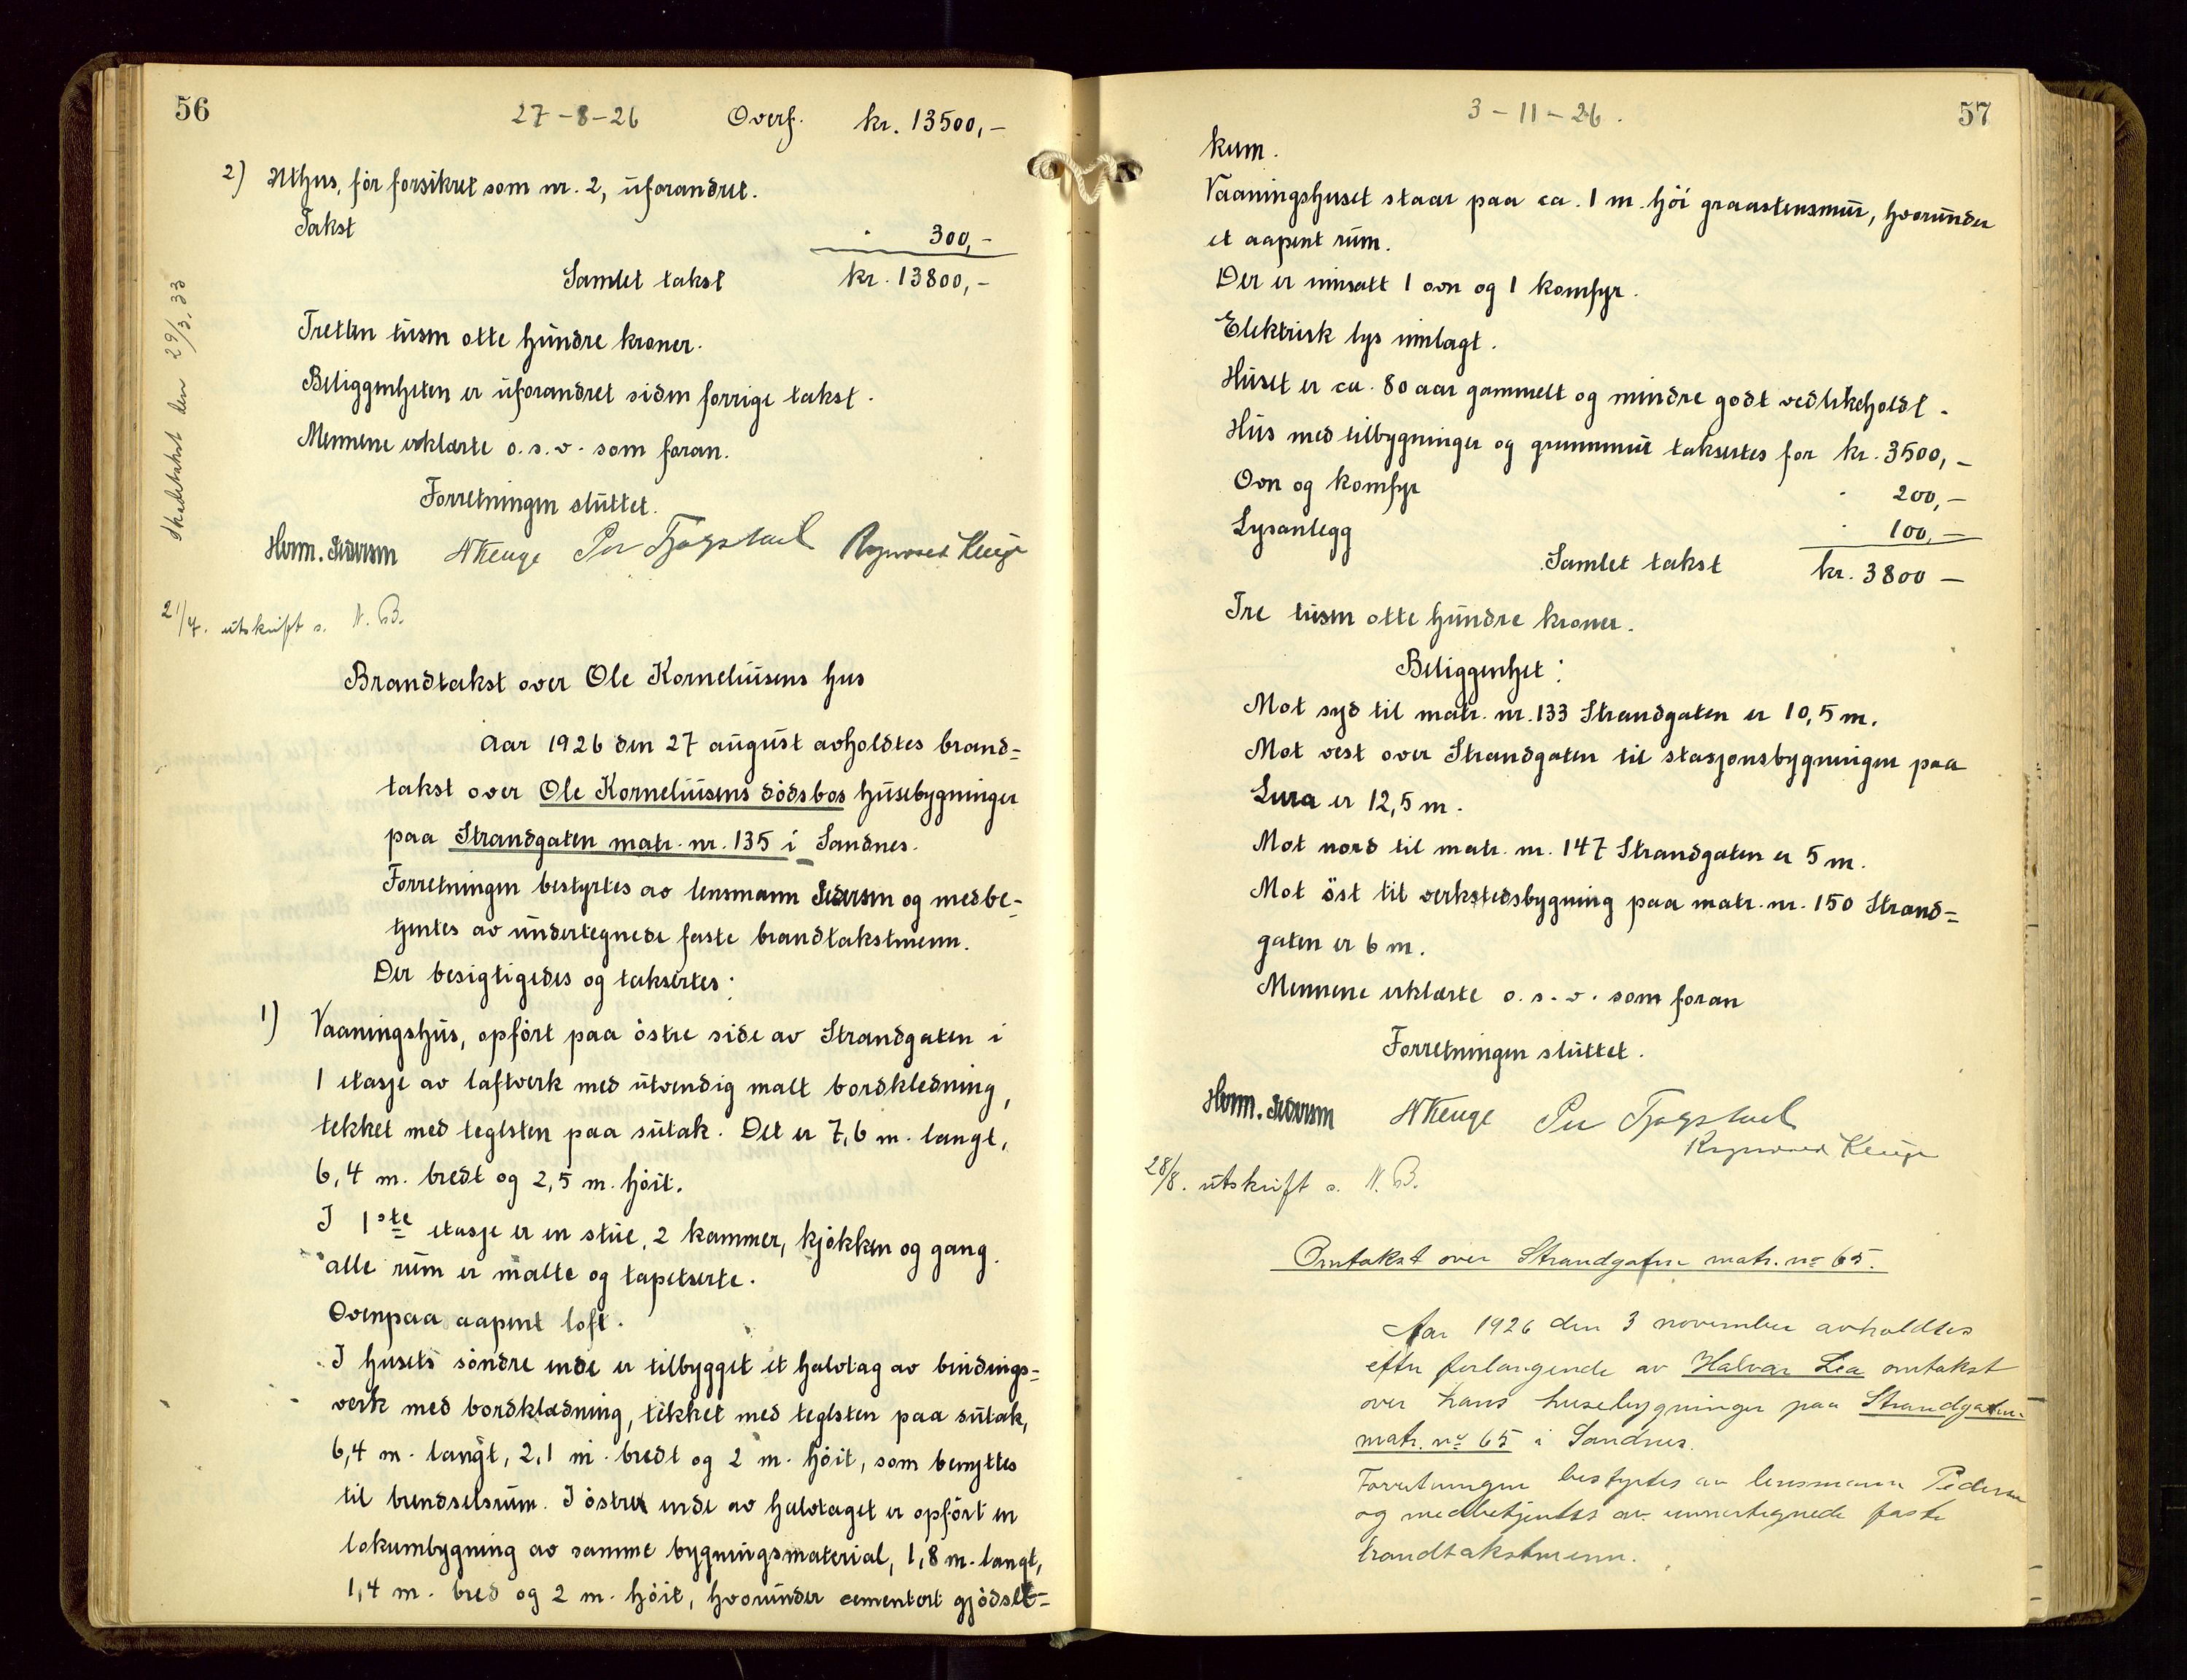 56
27-8-26 Overf. kr. 13500,-
2) Uthus, før forsikret som nr. 2, uforandret.
Takst " 300,-
Samlet takst kr. 13800,-
Tretten tusen otte hundre kroner.
Beliggenheten er uforandret siden forrige takst.
Mennene erklærte o.s.v. som foran.
Forretningen sluttet.
Herm. Pedersen Per Tjøgstad
Skadetakst den 29/3.33
21/4. utskrift s. N. B.
Brandtakst over Ole Korneliusens hus
Aar 1926 den 27 august avholdtes brand=
takst over Ole Korneliusens dödsbos husebygninger
paa Strandgaten matr. nr. 135 i Sandnes.
Forretningen bestyrtes av lensmann Pedersen og medbe-
tjentes av undertegnede faste brandtakstmenn.
Der besigtigedes og taksertes:
1) Vaaningshus, opfört paa östre side av Strandgaten i
1 etasje av laftverk med utvendig malt bordkledning,
tekket med teglsten paa sutak. Det er 7,6 m. langt,
6,4 m. bredt og 2,5 m. höit.
I 1ste etasje er en stue, 2 kammer, kjökken og gang.
alle rum er malte og tapetserte.
Ovenpaa aapent loft.
I husets söndre ende er tilbygget et halvtag av bindings=
verk med bordklædning, tekket med teglsten paa sutak,
6,4 m. langt, 2,1 m. bredt og 2 m. höit, som benyttes
til brendselsrum. I östre ende av halvtaget er opfört en
lokumbygning av samme bygningsmaterial, 1,8 m. langt,
1,4 m. bred og 2 m. höit, hvorunder cementert gjödsel=
57
3-11-26.
kum.
Vaaningshuset staar paa ca. 1 m. höi graastensmur, hvorunder
et aapent rum.
Der er innsatt 1 ovn og 1 komfyr.
Elektrisk lys innlagt.
Huset er ca. 80 aar gammelt og mindre godt vedlikeholdt.
Hus med tilbygninger og grunnmur taksertes for kr. 3500,-
Ovn og komfyr " 200,-
Lysanlegg " 100,-
Samlet takst kr. 3800 -
Tre tusen otte hundre kroner.
Beliggenhet:
Mot syd til matr. nr. 133 Strandgaten er 10,5 m.
Mot vest over Strandgaten til stasjonsbygningen paa
Lura er 12,5 m.
Mot nord til matr. nr. 147 Strandgaten er 5 m.
Mot öst til verkstedsbygning paa matr. nr. 150 Strand=
gaten er 6 m.
Mennene erklærte o.s.v. som foran
Forretningen sluttet.
Herm. Pedersen Per Tjøgstad
28/8. utskrift s. N. B.
Omtakst over Strandgaten matr. no 65.
Aar 1926 den 3 november avholdtes
efter forlangende av Halvar Lea omtakst
over hans husebygninger paa Strandgaten
matr. no 65 i Sandnes.
Forretningen bestyrtes av lensmann Pedersen
og medbetjentes av unnertegnede faste
brandtakstmenn.